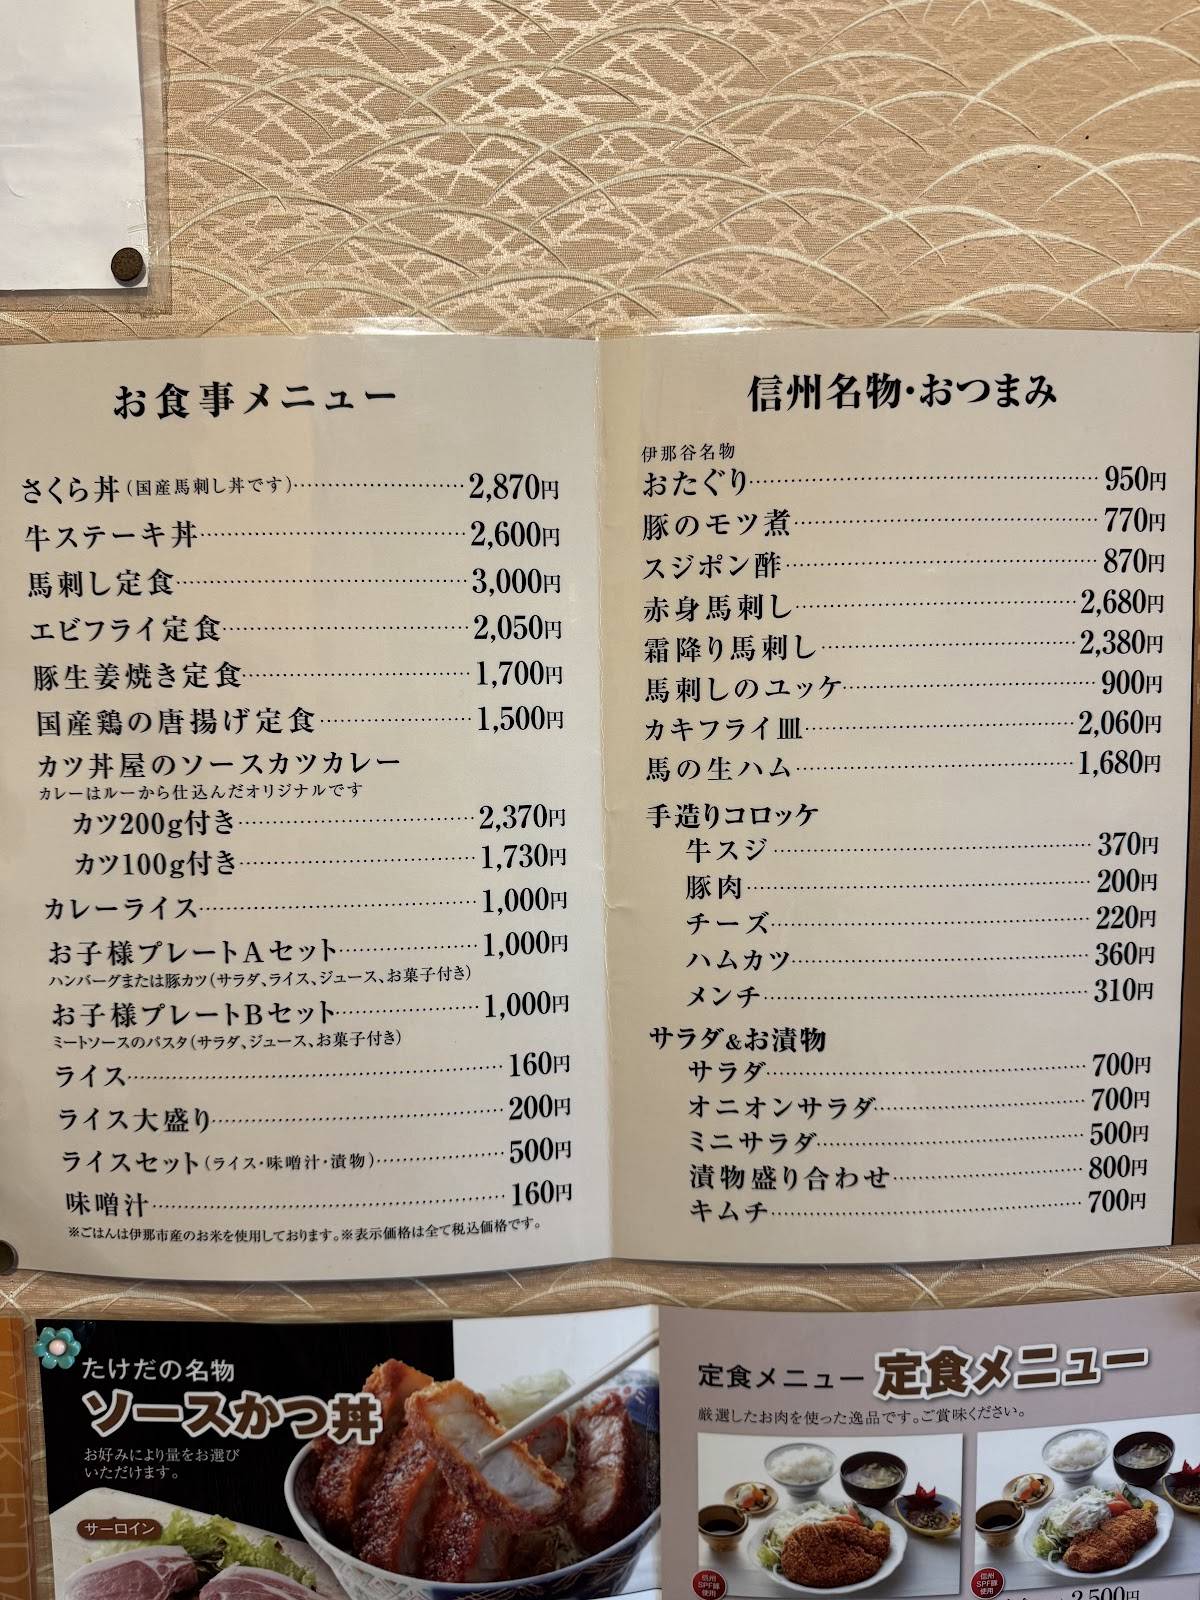 お食事メニュー
さくら丼(国産馬刺し丼です)……2,870円
牛ステーキ丼……2,600円
馬刺し定食……3,000円
エビフライ定食……2,050円
豚生姜焼き定食……1,700円
国産鶏の唐揚げ定食……1,500円
カツ丼屋のソースカツカレー
カレーはルーから仕込んだオリジナルです
カツ200g付き……2,370円
カツ100g付き……1,730円
カレーライス……1,000円
お子様プレートAセット……1,000円
ハンバーグまたは豚カツ(サラダ、ライス、ジュース、お菓子付き)
お子様プレートBセット……1,000円
ミートソースのパスタ(サラダ、ジュース、お菓子付き)
ライス……160円
ライス大盛り……200円
ライスセット(ライス・味噌汁・漬物)……500円
味噌汁……160円
※ごはんは伊那市産のお米を使用しております。※表示価格は全て税込価格です。
信州名物・おつまみ
伊那谷名物
おたぐり……950円
豚のモツ煮……770円
スジポン酢……870円
赤身馬刺し……2,680円
霜降り馬刺し……2,380円
馬刺しのユッケ……900円
カキフライ皿……2,060円
馬の生ハム……1,680円
手造りコロッケ
牛スジ……370円
豚肉……200円
チーズ……220円
ハムカツ……360円
メンチ……310円
サラダ&お漬物
サラダ……700円
オニオンサラダ……700円
ミニサラダ……500円
漬物盛り合わせ……800円
キムチ……700円
たけだの名物
ソースかつ丼
お好みにより量をお選び
いただけます。
サーロイン
定食メニュー 定食メニュー
厳選したお肉を使った逸品です。ご賞味ください。
信州
SPF豚
使用
信州
SPF豚
使用
2,500円